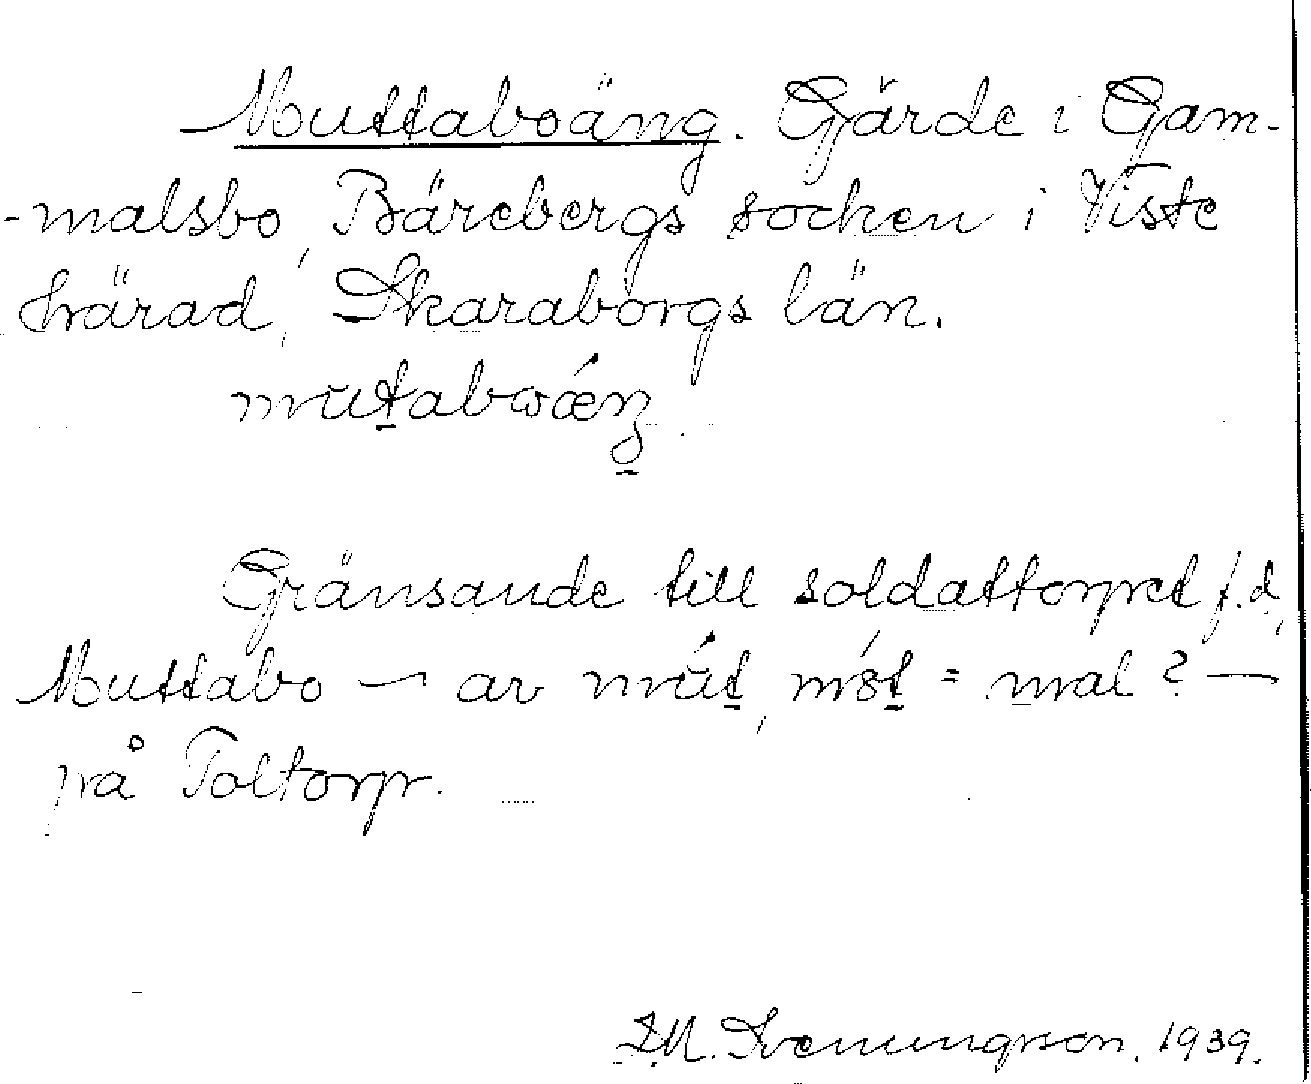 Muttaboäng. Gärde i Gam-
-malsbo, Bärebergs socken i Viste
härad, Skaraborgs län.
Gränsande till soldattorpet f.d.
Muttabo — av mút, = mal? —
på Toltorp.
Svenungson. 1939.